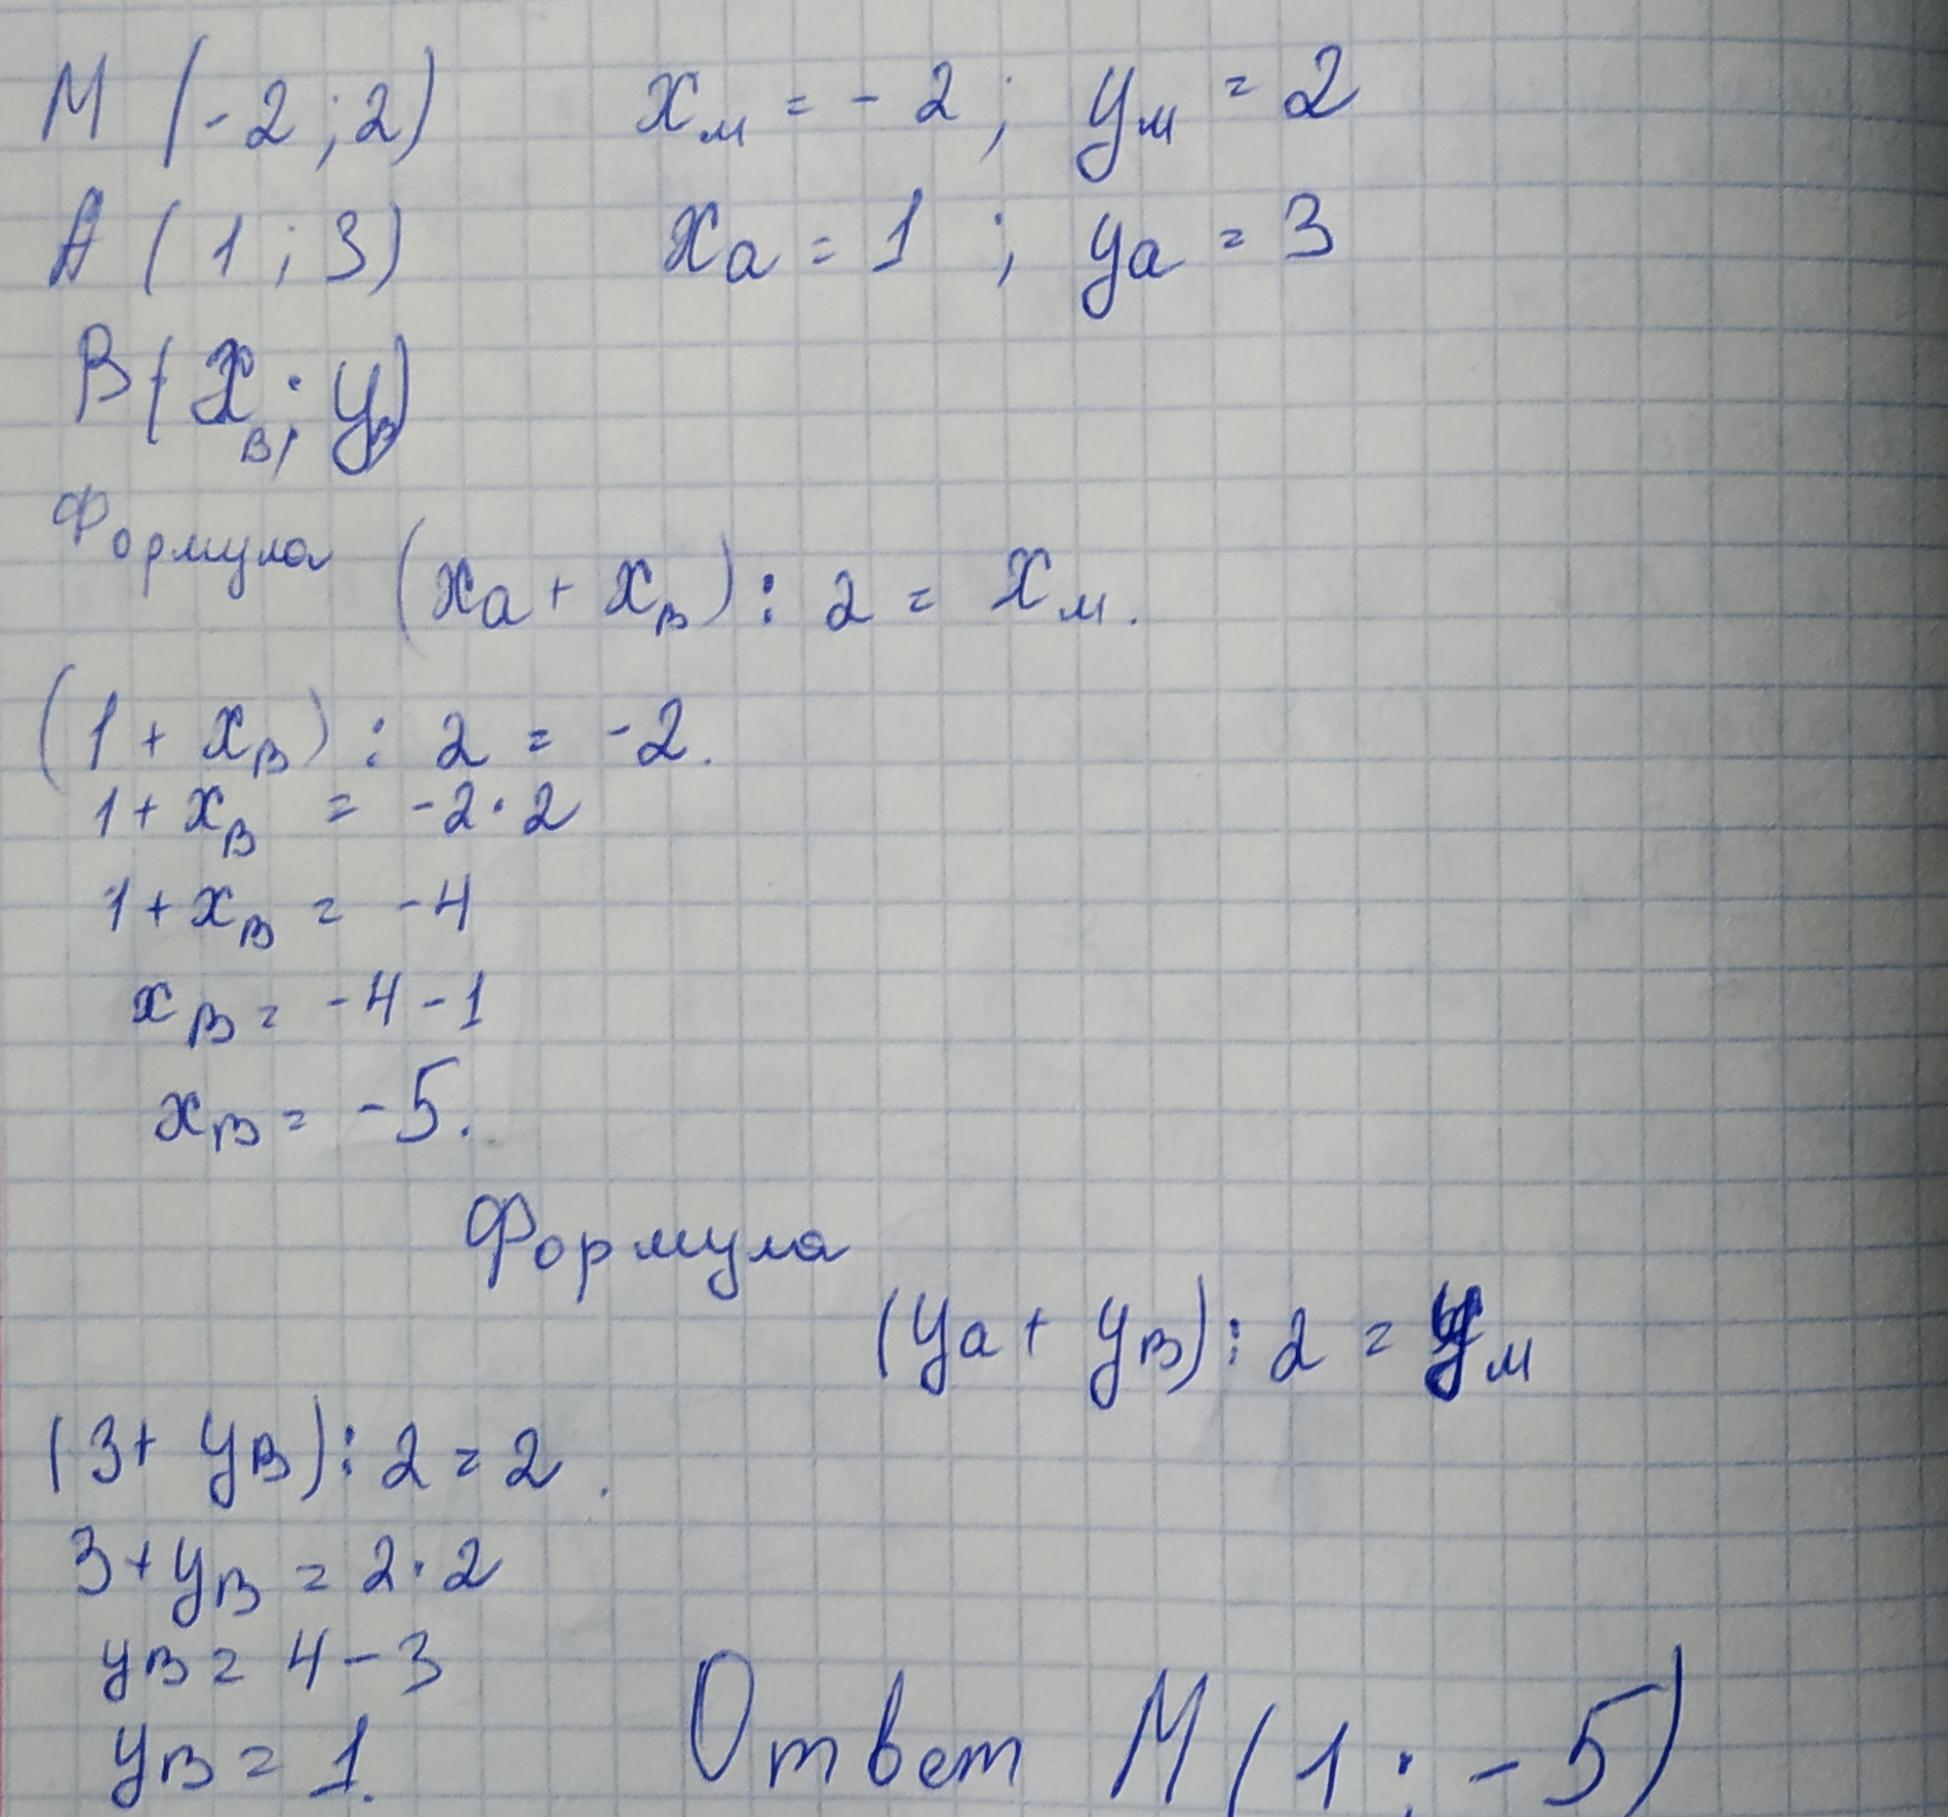 М (-2 ; 2) xм = -2 ; yм = 2
А ( 1 ; 3) xa = 1 ; ya = 3
B ( xB ; yB)
Формула (xa + xB) : 2 = xм.
(1 + xB) : 2 = -2.
1 + xB = -2 · 2
1 + xB = -4
xB = -4 - 1
xB = -5.
Формула
(ya + yB) : 2 = yм
(3 + yB) : 2 = 2.
3 + yB = 2 · 2
yB = 4 - 3
yB = 1. Ответ М (1 ; -5)